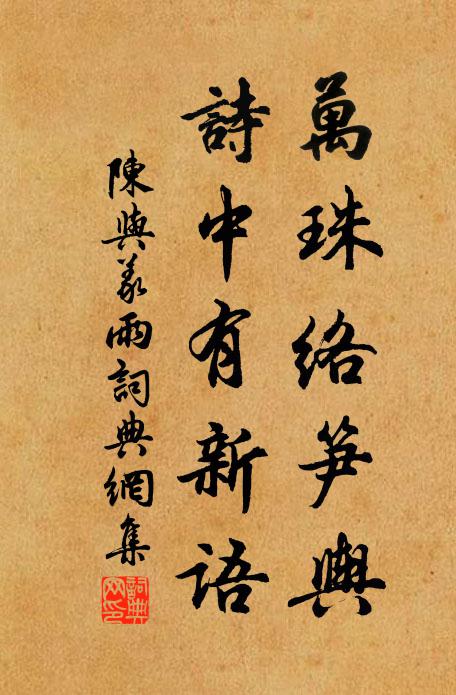 萬珠絡笋輿
詩中有新語
陳與義雨詞典網集
詞典
网印